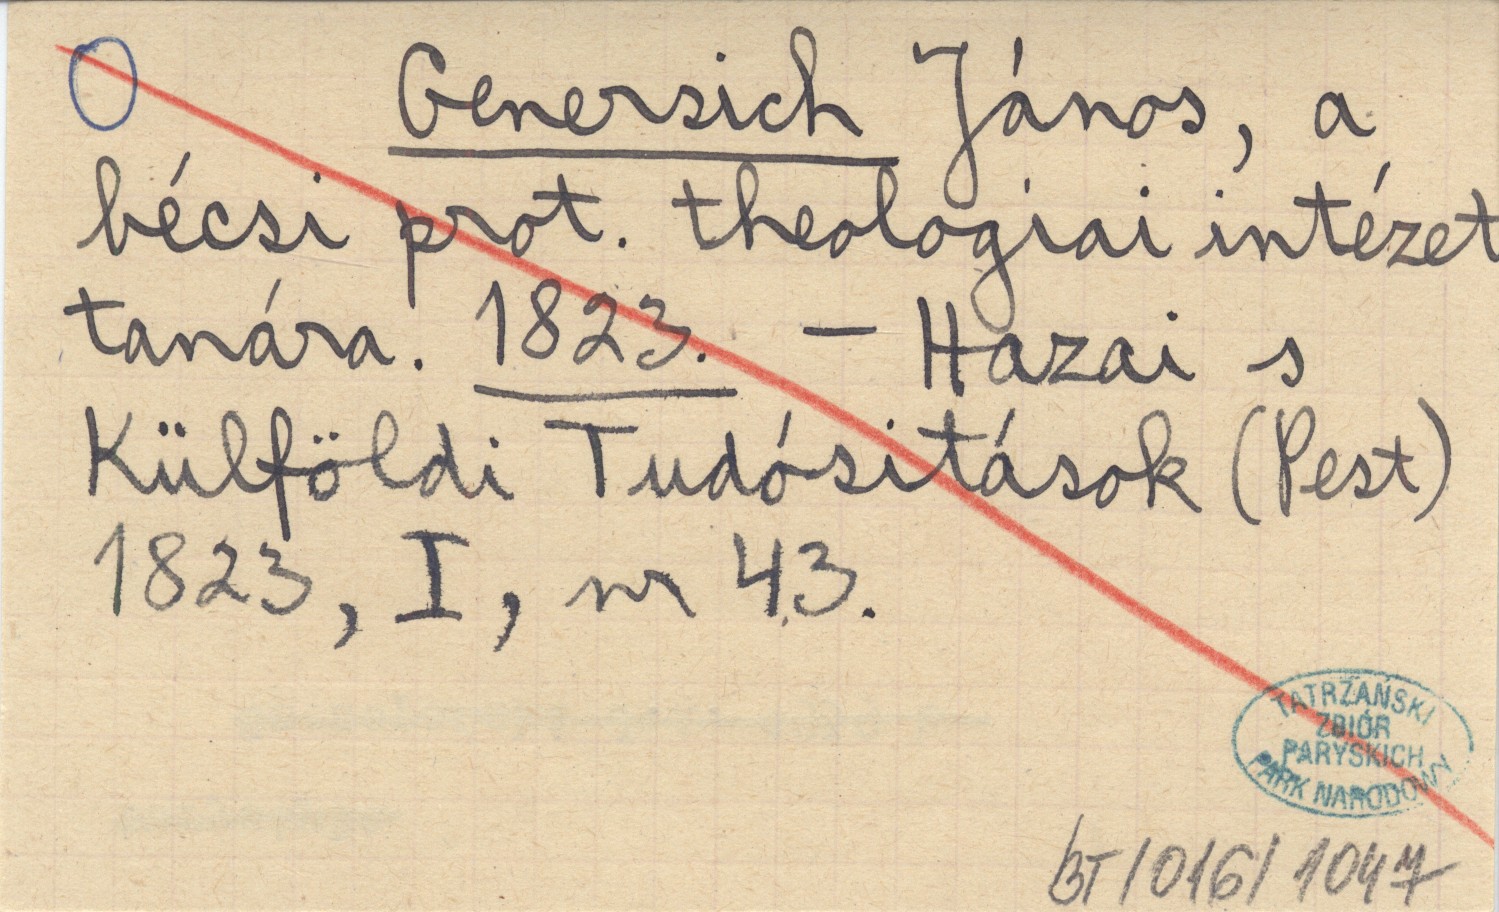 Genersich János, a
bécsi prot. theologiai intézet
tanára. 1823. – Hazai s
Külföldi Tudósitások (Pest)
1823, I, nr 43.
TATRZAŃSKI
ZBIÓR
PARYSKICH
PARK NARODOWY
BT/016/1047